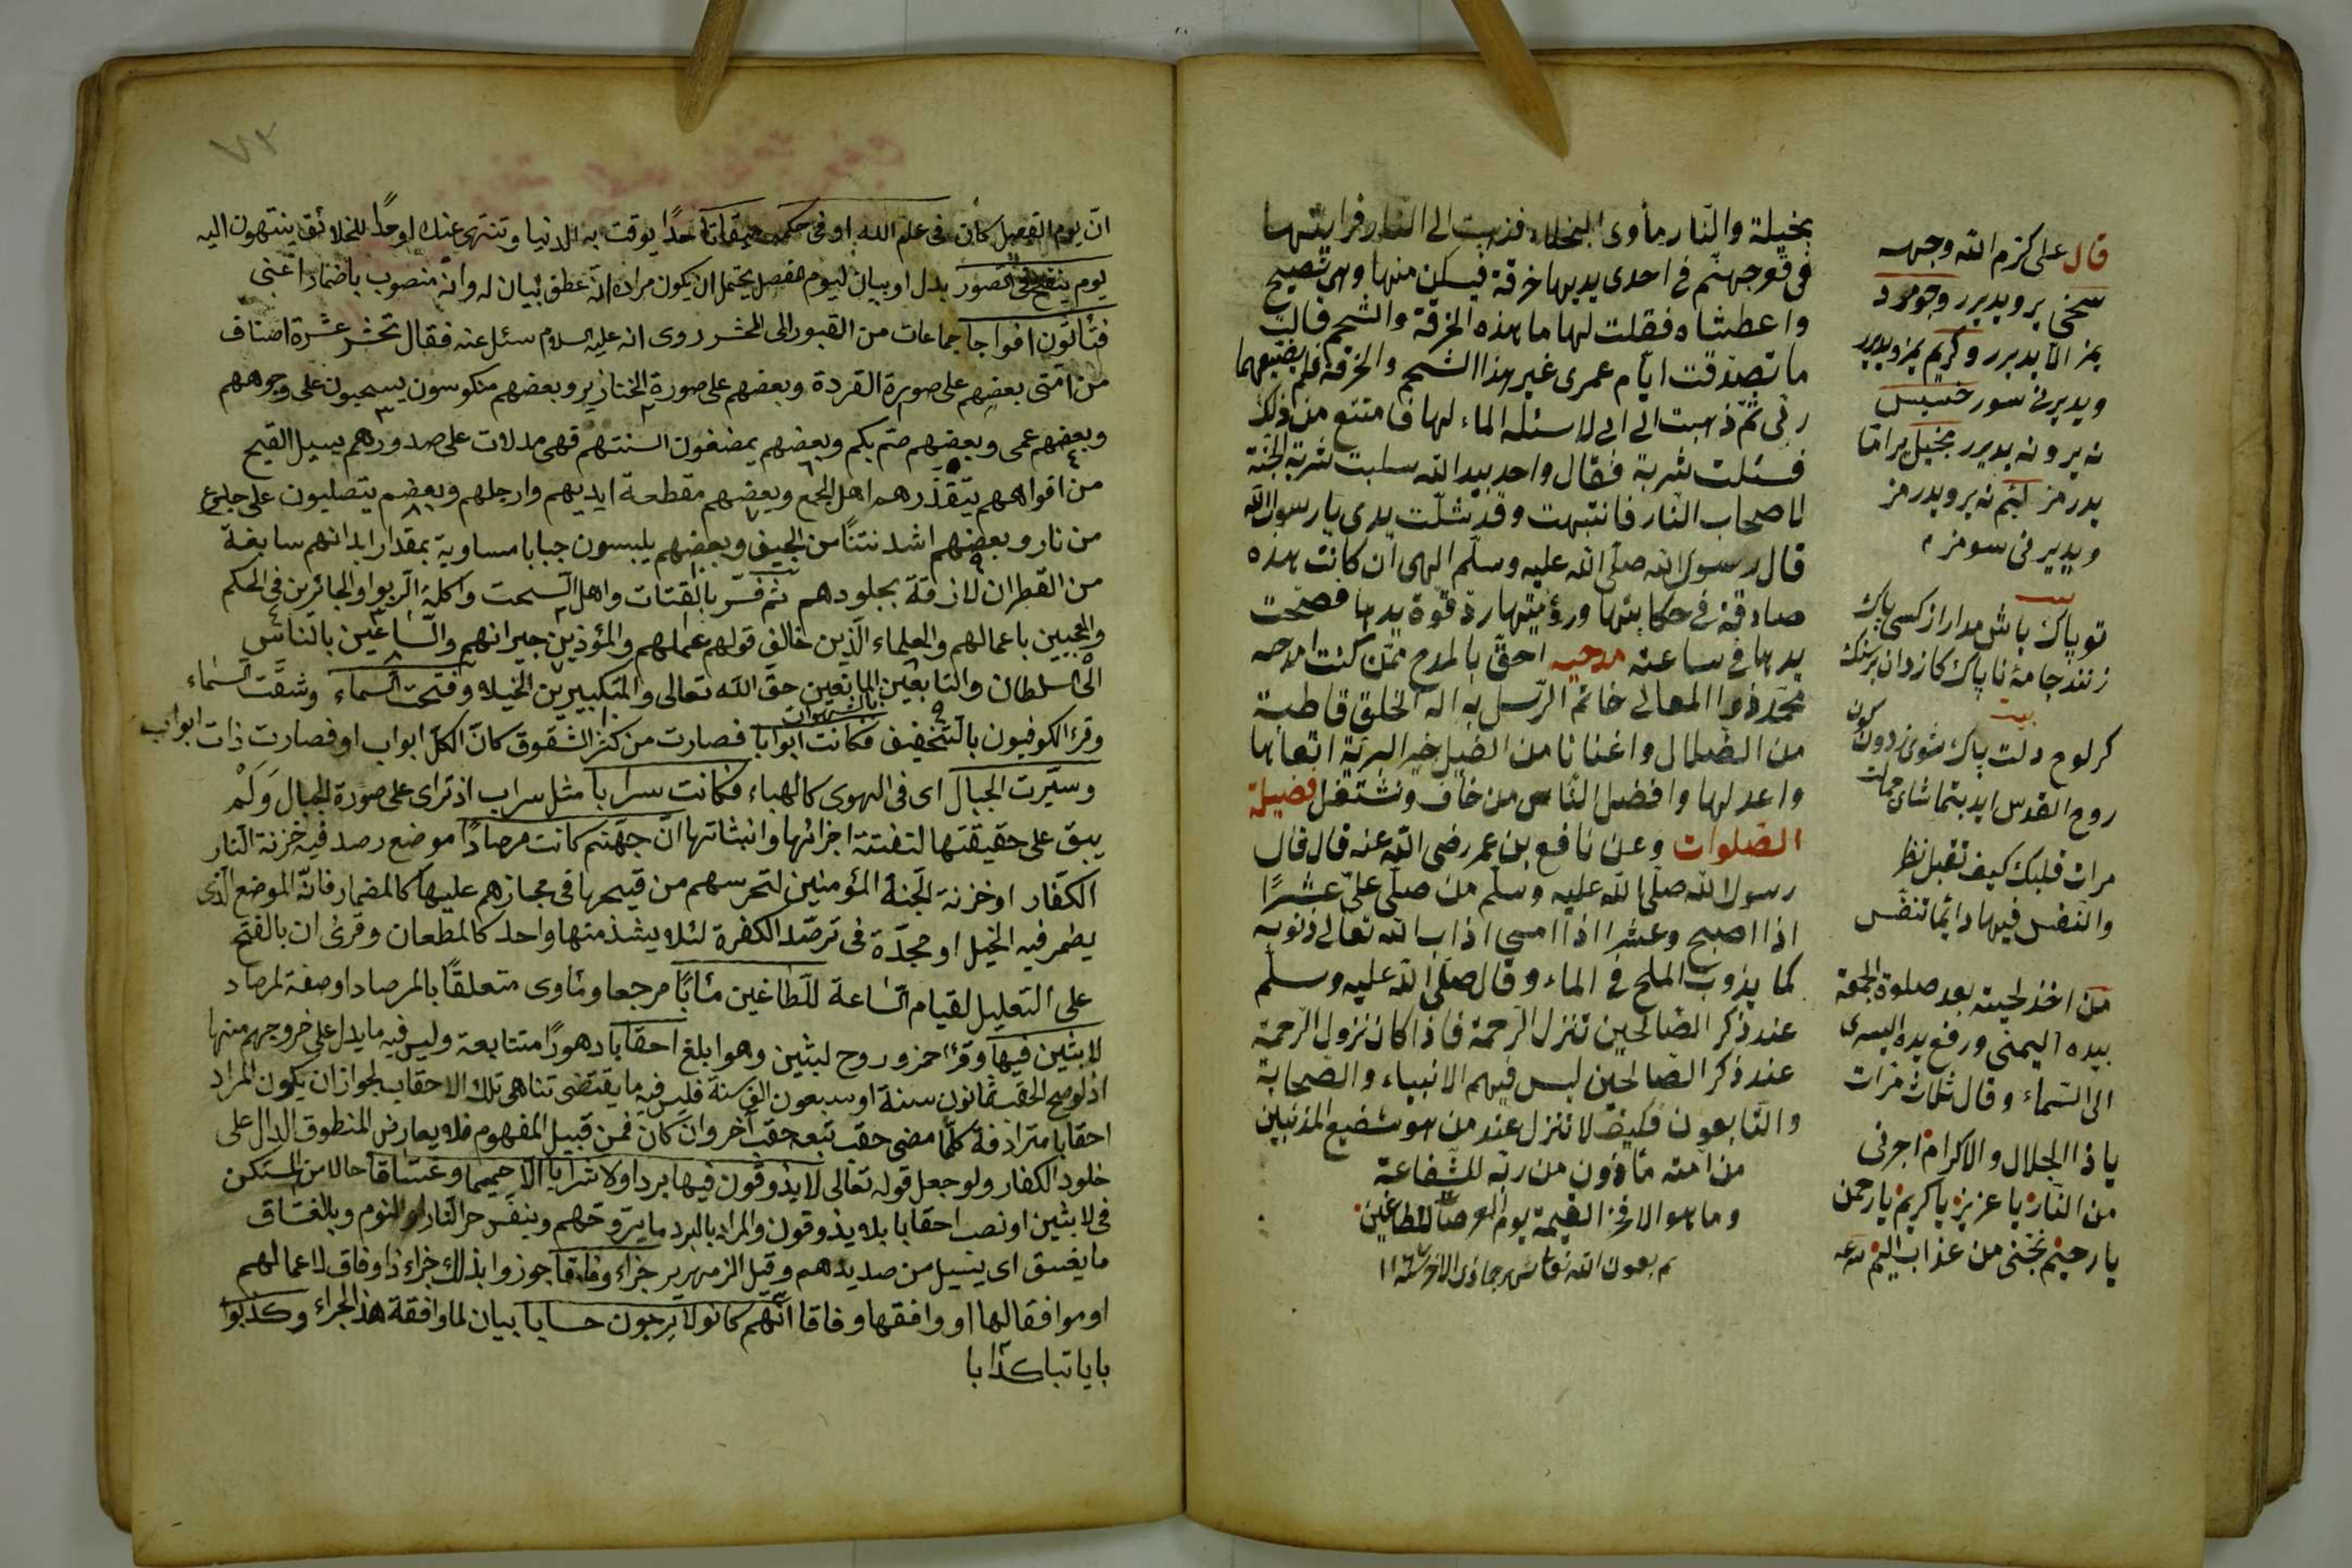 بخيلة والنار مأوى البخلاء فذهبت الى النار فرايتها
فى قعر جهنم فى احدى يديها خرقة فيسكن منها وهى تصيح
واعطشاه فقلت لها ما هذه الخرقة والشحم قالت
ما تصدقت ايام عمرى غير هذا الشحم والخرقة فلم يضيعهما
ربى ثم ذهبت الى ابى لاسئله الماء لها فامتنع من ذلك
فسئلت شربة فقال واحد بيد الله سلبت شربة الجنة
لاصحاب النار فانتبهت وقد شلت يدى يا رسول الله
قال رسول الله صلى الله عليه وسلم الهى ان كانت هذه
صادقة فى حكايتها ورؤيتها رد قوة يدها فصحت
يدها فى ساعته مدحيه احق بالمدح ممن كنت امدحه
محمد ذو المعالى خاتم الرسل به اله الخلق قاطبة
من الضلال واغنانا من الضيل خير البرية اتقاها
واعدلها وافضل الناس من خاف ونشتغل فضيلة
الصلوات وعن نافع بن عمر رضى الله عنه قال قال
رسول الله صلى الله عليه وسلم من صلى على عشرا
اذا اصبح وعشرا اذا امسى اذاب الله تعالى ذنوبه
كما يذوب الملح فى الماء وقال صلى الله عليه وسلم
عند ذكر الصالحين تنزل الرحمة فاذا كان نزول الرحمة
عند ذكر الصالحين ليس فيهم الانبياء والصحابة
والتابعون فكيف لا تنزل عند من هو شفيع المذنبين
من امته مأذون من ربه للشفاعة
وما هو الا فخر القيمة يوم العرصات للطاغين
تم بعون الله تعا شهر جماذى الاخر سنة ١١٦
قال على كرم الله وجهه
سخى ير ويدير وجومرد
يمز الا يديرر وكريم يمز ويديرر
ويديرنى سور خسيس
نه ير ونه يديرر بخيل ير اما
يدرمز لئيم نه ير ويدرمز
ويديرنى سومز
بيت
تو پاك باش مدار از كسى باك
زنند جامه ناپاك كازران بر سنك
بيت
كر لوح دلت پاك شوى زدون كون
روح القدس ايد بتماشاى جمالت
مرات قلبك كيف تقبل نظر
والنفس فيها دائما تنفس
من اخذ لحيته بعد صلوة الجمعة
بيده اليمنى ورفع يده اليسرى
الى السماء وقال ثلاث مرات
يا ذا الجلال والاكرام اجرنى
من النار يا عزيز يا كريم يا رحمن
يا رحيم نجنى من عذاب اليم
٧٢
ان يوم الفصل كان فى علم الله او فى حكمه ميقاتا حدا يوقت به الدنيا وتنتهى عنك او حدا للخلائق ينتهون اليه
يوم ينفخ فى الصور بدل او بيان ليوم الفصل يحتمل ان يكون مراده انه عطف بيان له وانه منصوب باضمار اعنى
فتأتون افواجا جماعات من القبور الى المحشر روى انه عليه السلام سئل عنه فقال تحشر عشرة اصناف
من امتى بعضهم على صورة القردة وبعضهم على صورة الخنازير وبعضهم منكوسون يسحبون على وجوههم
وبعضهم عمى وبعضهم صم بكم وبعضهم يمضغون السنتهم فهى مدلات على صدورهم يسيل القيح
من افواههم يتقذرهم اهل الجمع وبعضهم مقطعة ايديهم وارجلهم وبعضهم يتصلبون على جذوع
من نار وبعضهم اشد نتنا من الجيف وبعضهم يلبسون جبابا مساوية بمقدار ابدانهم سابغة
من القطران لازقة بجلودهم ثم فسر بالقتات واهل السحت واكلة الربوا والجائرين فى الحكم
والمعجبين باعمالهم والعلماء الذين خالف قولهم عملهم والمؤذين جيرانهم والساعين بالناس
الى السلطان والتابعين بالشهوات المانعين حق الله تعالى والمتكبرين الخيلاء وفتحت السماء وشقت السماء
وقرء الكوفيون بالتخفيف فكانت ابوابا فصارت من كثرة الشقوق كان الكل ابواب او فصارت ذات ابواب
وسيرت الجبال اى فى الهوى كالهباء فكانت سرابا مثل سراب اذ ترى على صورة الجبال ولم
يبق على حقيقتها لتفتت اجزائها وانبثاثها ان جهنم كانت مرصادا موضع رصد فيه خزنة النار
الكفار او خزنة الجنة المؤمنين لتحرسهم من قيحها فى مجازهم عليها كالمضمار فانه الموضع الذى
يضمر فيه الخيل او مجدة فى ترصد الكفرة لئلا يشذ منها واحد كالمطعان وقرئ ان بالفتح
على التعليل لقيام الساعة للطاغين مئابا مرجعا ومأوى متعلقا بالمرصاد او صفة لمرصاد
لابثين فيها وقرا حمز وروح لبثين وهو ابلغ احقابا دهورا متتابعة وليس فيه ما يدل على خروجهم منها
اذ لو صح الحقب ثمانون سنة او سبعون الف سنة فليس فيه ما يقتضى تناهى تلك الاحقاب لجواز ان يكون المراد
احقابا مترادفة كلما مضى حقب تبعه حقب اخر وان كان فمن قبيل المفهوم فلا يعارض المنطوق الدال على
خلود الكفار ولو جعل قوله تعالى لا يذوقون فيها بردا ولا شرابا الا حميما وغساقا حالا من المستكن
فى لابثين او نصب احقابا بلا يذوقون والمراد بالبرد ما يروحهم وينفس حر النار او النوم وبالغساق
ما يغسق اى يسيل من صديدهم وقيل الزمهرير جزاء وفاقا جوزوا بذلك جزاء ذا وفاق لاعمالهم
او موافقا لها او وافقها وفاقا انهم كانوا لا يرجون حسابا بيان لما وافقه هذا الجزاء وكذبوا
باياتنا كذابا